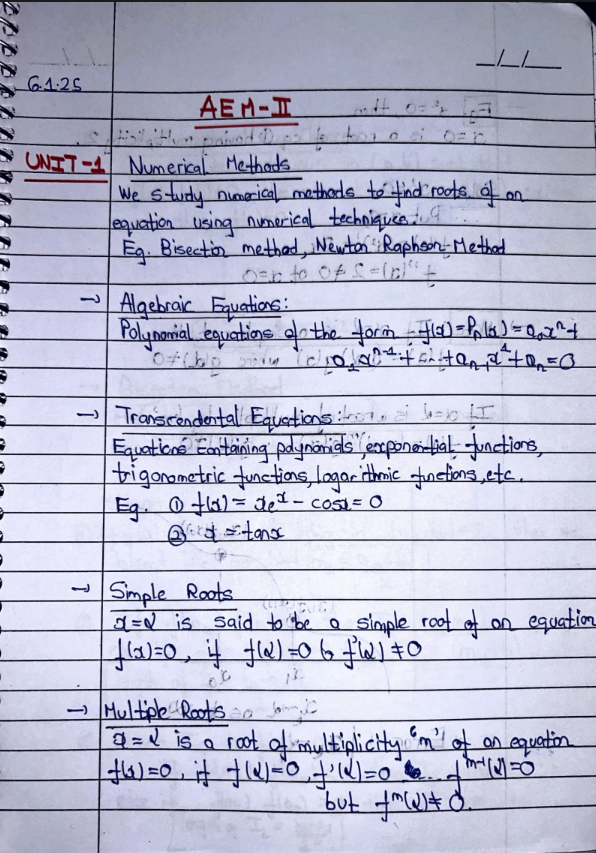 _/_/__
6.1.25
AEM-II
UNIT-1 Numerical Methods
We study numerical methods to find roots of an
equation using numerical techniques.
Eg. Bisection method, Newton Raphson Method
→ Algebraic Equations:
Polynomial equations of the form f(x)=Pₙ(x)=a₀xⁿ+
a₁xⁿ⁻¹+...+aₙ₋₁x¹+aₙ=0
→ Transcendental Equations:
Equations containing polynomials, exponential functions,
trigonometric functions, logarithmic functions, etc.
Eg. ① f(x) = xeˣ - cosx = 0
② x = tanx
→ Simple Roots
x=α is said to be a simple root of an equation
f(x)=0, if f(α)=0 & f'(α) ≠ 0
→ Multiple Roots
x=α is a root of multiplicity 'm' of an equation
f(x)=0, if f(α)=0, f'(α)=0 ... fᵐ⁻¹(α)=0
but fᵐ(α) ≠ 0.